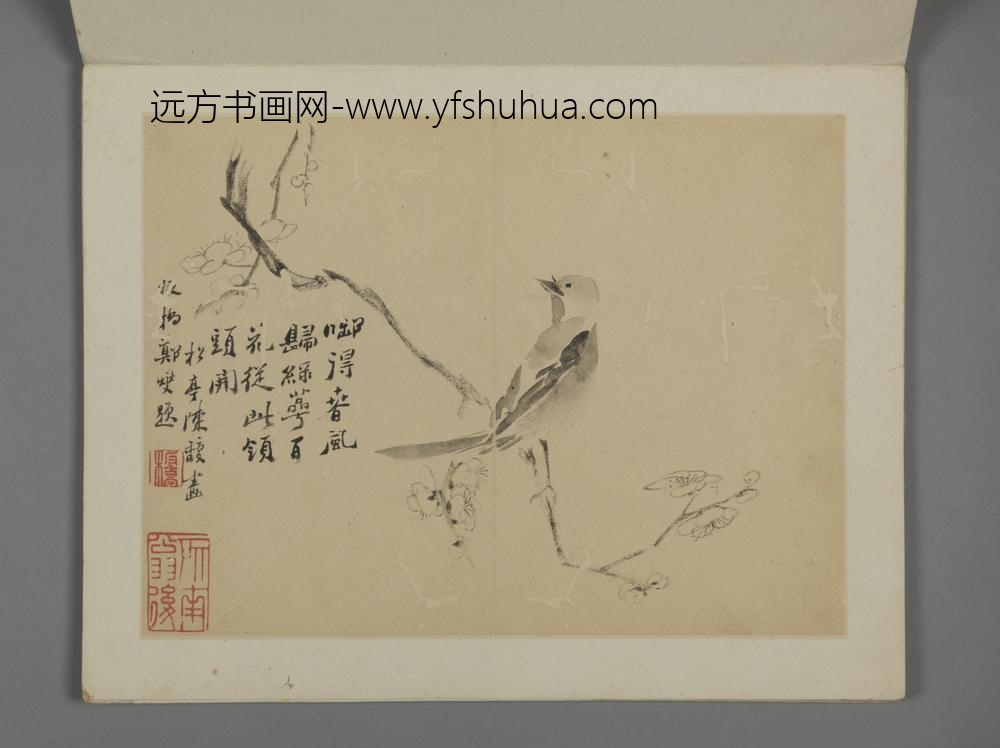 远方书画网-www.yfshuhua.com
啣得春風
歸綠萼百
花從此領
頭開
松亭陳馥畫
板橋鄭燮題
所南翁後